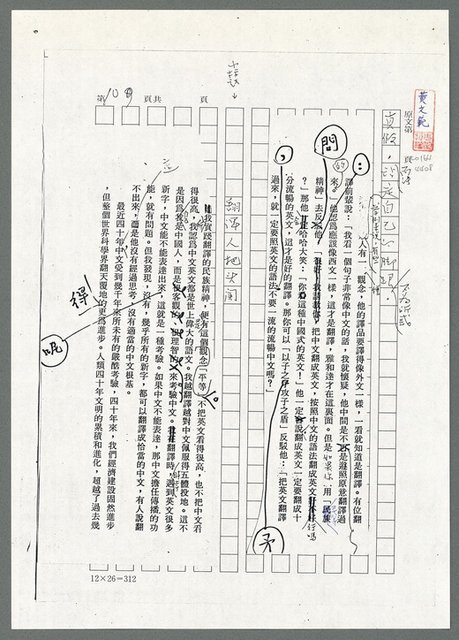 黃文範
原文第
第109頁共 頁
問
：
，
人有一觀念，他的譯品要譯得像外文一樣，一看就知道是翻譯。有位翻
譯前輩說：「我看一個句子非常像中文的話，我就懷疑，他中間是不是避照原意翻譯過
來。」他認為應該像西文一樣，這才是翻譯，雅和達才在這裏面。但是如果你用「民族
精神」去反
把中文翻成英文，按照中文的語法翻成英文好行嗎
？」那他哈哈大笑：「你這種中國式的英文！」他一定會說翻成英文一定要翻成十
分流暢的英文，這才是好的翻譯。那你可以「以子之矛攻子之盾」反駁他：「把英文翻譯
過來，就一定要照英文的語法不要一流的流暢中文嗎？」
矛
翻譯人地失間
我實踐翻譯的民族精神，便有這個觀念「平等」。不把英文看得很高，也不把中文看
得很高，我認為中文英文都是世上偉大的語文。我越翻譯越對中文佩服得五體投地。這不
是因為我是中國人，而是很客觀、很理智的來考驗中文。翻譯時，遇到英文很多
新字，中文能不能表達出來，這就是一種考驗。如果中文不能表達，那中文擔任傳播的功
能，就有問題。但我發現，沒有，幾乎所有的新字，都可以翻譯成恰當的中文，有人說翻
不出來，而是他沒有經過思考，沒有適當的中文根基。
最近四十年中文受到幾千年來所未有的嚴酷考驗，四十年來，我們經濟建設固然進步
，但整個世界科學界翻天覆地的更為進步。人類四十年文明的累積和進化，超越了過去幾
得
呢
12×26=312